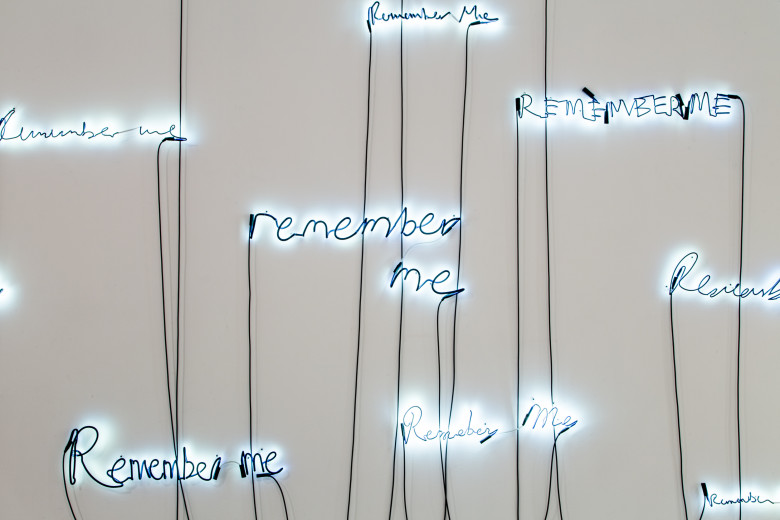 Remember Me
REMEMBER ME
Remember me
remember
me
Remember Me
Remember me
Remember